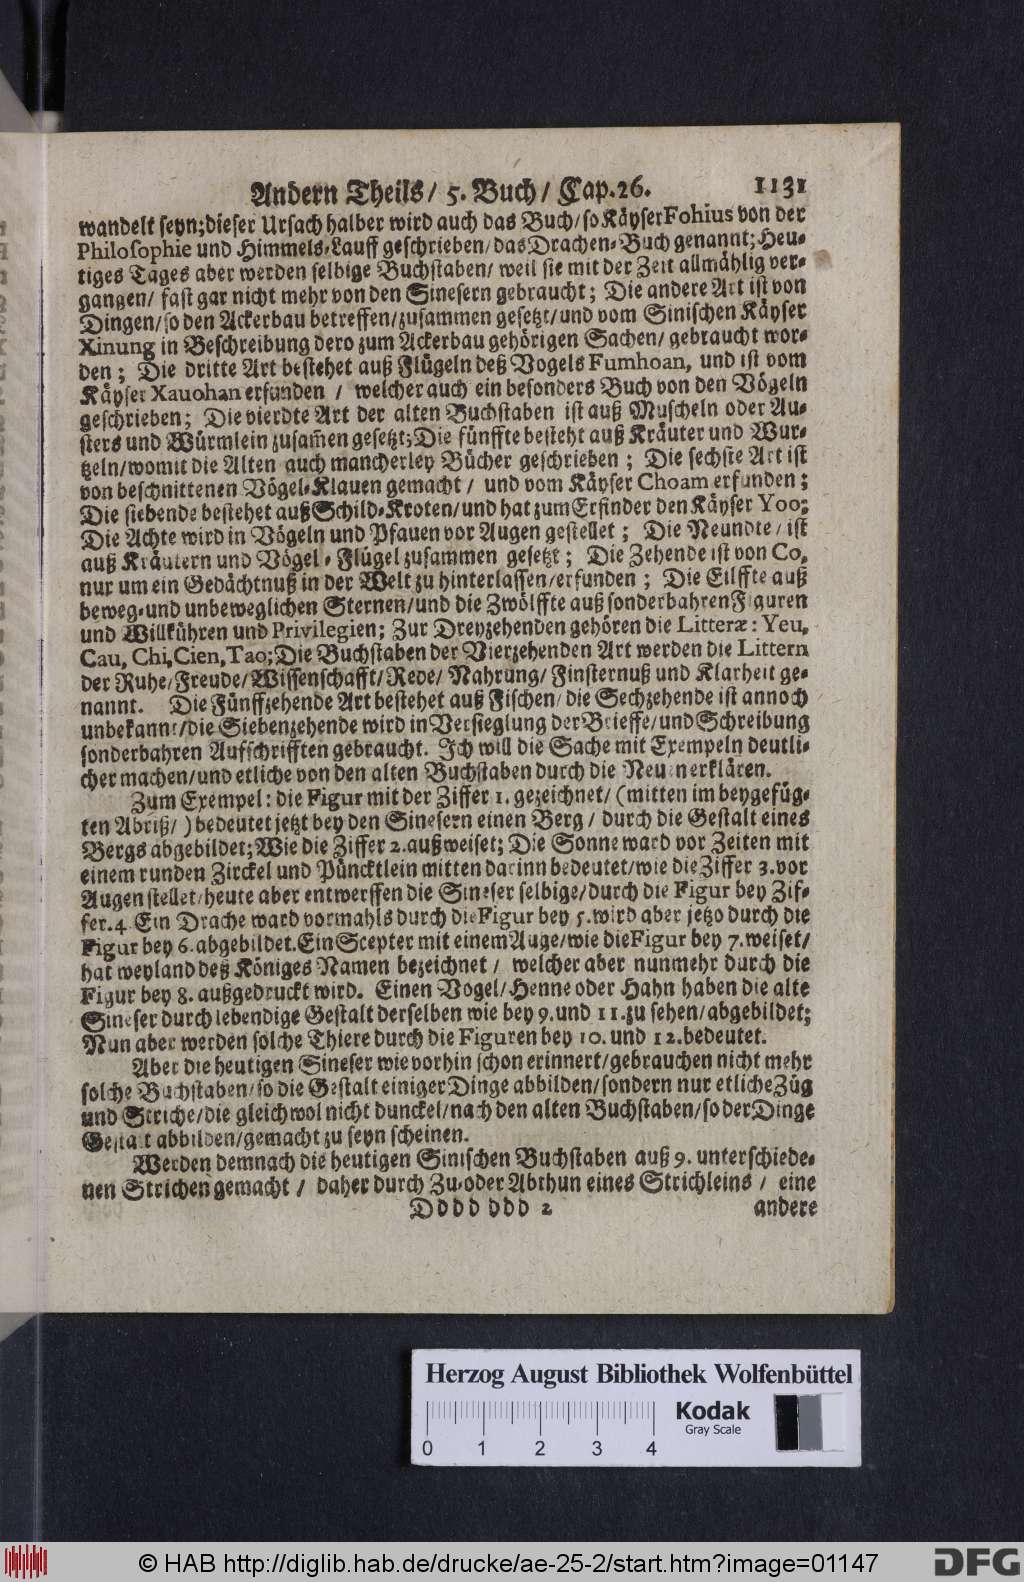 Andern Theils/ 5. Buch/ Cap. 26. 1131
wandelt seyn; dieser Ursach halber wird auch das Buch/ so Käyser Fohius von der
Philosophie und Himmels-Lauff geschrieben/ das Drachen-Buch genannt; Heu-
tiges Tages aber werden selbige Buchstaben/ weil sie mit der Zeit allmählig ver-
gangen/ fast gar nicht mehr von den Sinesern gebraucht; Die andere Art ist von
Dingen/ so den Ackerbau betreffen/ zusammen gesetzt/ und vom Sinischen Käyser
Xinung in Beschreibung dero zum Ackerbau gehörigen Sachen/ gebraucht wor-
den; Die dritte Art bestehet auß Flügeln deß Vogels Fumhoan, und ist vom
Käyser Xauohan erfunden / welcher auch ein besonders Buch von den Vögeln
geschrieben; Die vierdte Art der alten Buchstaben ist auß Muscheln oder Au-
sters und Würmlein zusam̃en gesetzt; Die fünffte besteht auß Kräuter und Wur-
tzeln/ womit die Alten auch mancherley Bücher geschrieben; Die sechste Art ist
von beschnittenen Vögel-Klauen gemacht/ und vom Käyser Choam erfunden;
Die siebende bestehet auß Schild-Kroten/ und hat zum Erfinder den Käyser Yoo;
Die Achte wird in Vögeln und Pfauen vor Augen gestellet; Die Neundte/ ist
auß Kräutern und Vögel-Flügel zusammen gesetzt; Die Zehende ist von Co,
nur um ein Gedächtnuß in der Welt zu hinterlassen/ erfunden; Die Eilffte auß
beweg-und unbeweglichen Sternen/ und die Zwölffte auß sonderbahren Figuren
und Willkühren und Privilegien; Zur Dreyzehenden gehören die Litteræ: Yeu,
Cau, Chi, Cien, Tao; Die Buchstaben der Vierzehenden Art werden die Littern
der Ruhe/ Freude/ Wissenschafft/ Rede/ Nahrung/ Finsternuß und Klarheit ge-
nannt. Die Fünffzehende Art bestehet auß Fischen/ die Sechzehende ist annoch
unbekannt/ die Siebenzehende wird in Versieglung der Brieffe/ und Schreibung
sonderbahren Aufschrifften gebraucht. Ich will die Sache mit Exempeln deutli-
cher machen/ und etliche von den alten Buchstaben durch die Neuen erklären.
Zum Exempel: die Figur mit der Ziffer 1. gezeichnet/ (mitten im beygefüg-
ten Abriß/) bedeutet jetzt bey den Sinesern einen Berg/ durch die Gestalt eines
Bergs abgebildet; Wie die Ziffer 2. außweiset; Die Sonne ward vor Zeiten mit
einem runden Zirckel und Püncktlein mitten darinn bedeutet/ wie die Ziffer 3. vor
Augen stellet/ heute aber entwerffen die Sineser selbige/ durch die Figur bey Zif-
fer. 4 Ein Drache ward vormahls durch die Figur bey 5. wird aber jetzo durch die
Figur bey 6. abgebildet. Ein Scepter mit einem Auge/ wie die Figur bey 7. weiset/
hat weyland deß Königes Namen bezeichnet/ welcher aber nunmehr durch die
Figur bey 8. außgedruckt wird. Einen Vogel/ Henne oder Hahn haben die alte
Sineser durch lebendige Gestalt derselben wie bey 9. und 11. zu sehen/ abgebildet;
Nun aber werden solche Thiere durch die Figuren bey 10. und 12. bedeutet.
Aber die heutigen Sineser wie vorhin schon erinnert/ gebrauchen nicht mehr
solche Buchstaben/ so die Gestalt einiger Dinge abbilden/ sondern nur etliche Züg
und Striche/ die gleichwol nicht dunckel/ nach den alten Buchstaben/ so der Dinge
Gestalt abbilden/ gemacht zu seyn scheinen.
Werden demnach die heutigen Sinischen Buchstaben auß 9. unterschiede-
nen Strichen gemacht/ daher durch Zu-oder Abthun eines Strichleins/ eine
Dddd ddd 2 andere
Herzog August Bibliothek Wolfenbüttel
Kodak
Gray Scale
0 1 2 3 4
© HAB http://diglib.hab.de/drucke/ae-25-2/start.htm?image=01147
DFG